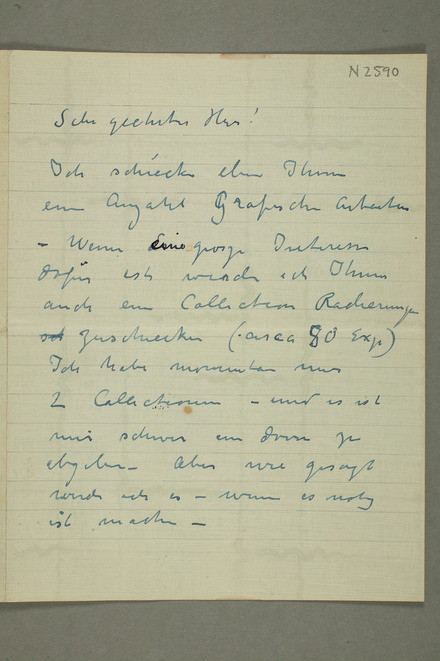 N 2590
Sehr geehrter Herr!
Ich schicke eben Ihnen
eine Anzahl Grafische Arbeiten
– Wenn eine grosze Interesse
dafür ist werde ich Ihnen
auch eine Collection Radierungen
zuschicken (circa 80 Exp)
Ich habe momentan nur
2 Collectionen – und es ist
mir schwer eine davon zu
abgeben – Aber wie gesagt
werde ich es – wenn es nötig
ist machen –